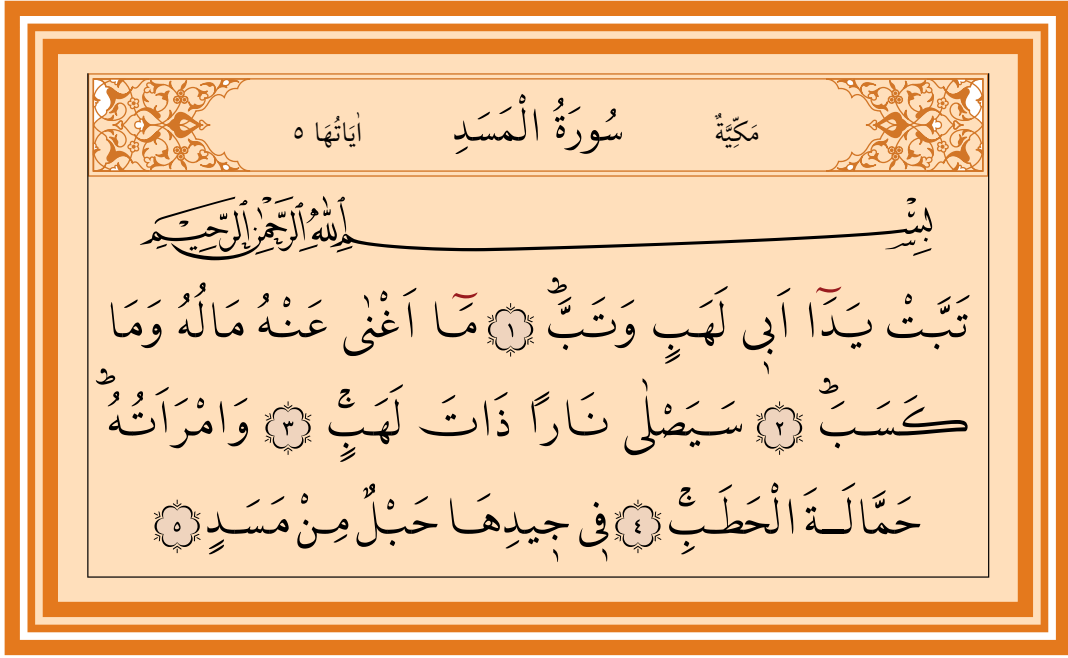 مَكِّيَّةٌ سُورَةُ الْمَسَدِ اٰيَاتُهَا ٥
بِسْمِ اللّٰهِ الرَّحْمٰنِ الرَّحٖيمِ
تَبَّتْ يَدَٓا اَبٖي لَهَبٍ وَتَبَّؕ ١ مَٓا اَغْنٰى عَنْهُ مَالُهُ وَمَا
كَسَبَؕ ٢ سَيَصْلٰى نَارًا ذَاتَ لَهَبٍۚ ٣ وَامْرَاَتُهُؕ
حَمَّالَةَ الْحَطَبِۚ ٤ فٖي جٖيدِهَا حَبْلٌ مِنْ مَسَدٍ ٥